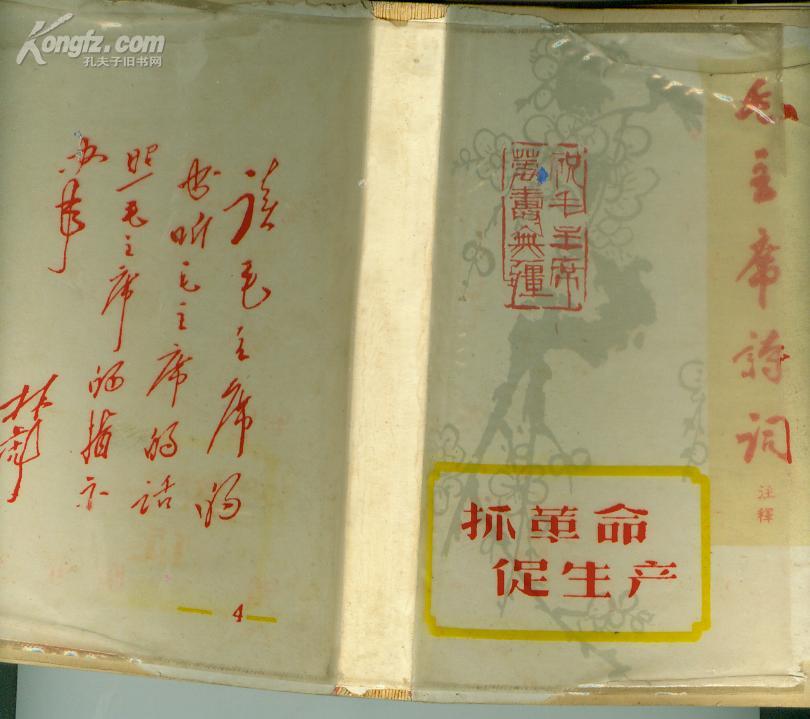 Kongfz.com
孔夫子旧书网
读毛主席的
书听毛主席的话
照毛主席的指示
办事
林彪
4
祝毛主席
萬壽無疆
毛主席詩詞
注釋
抓革命
促生产